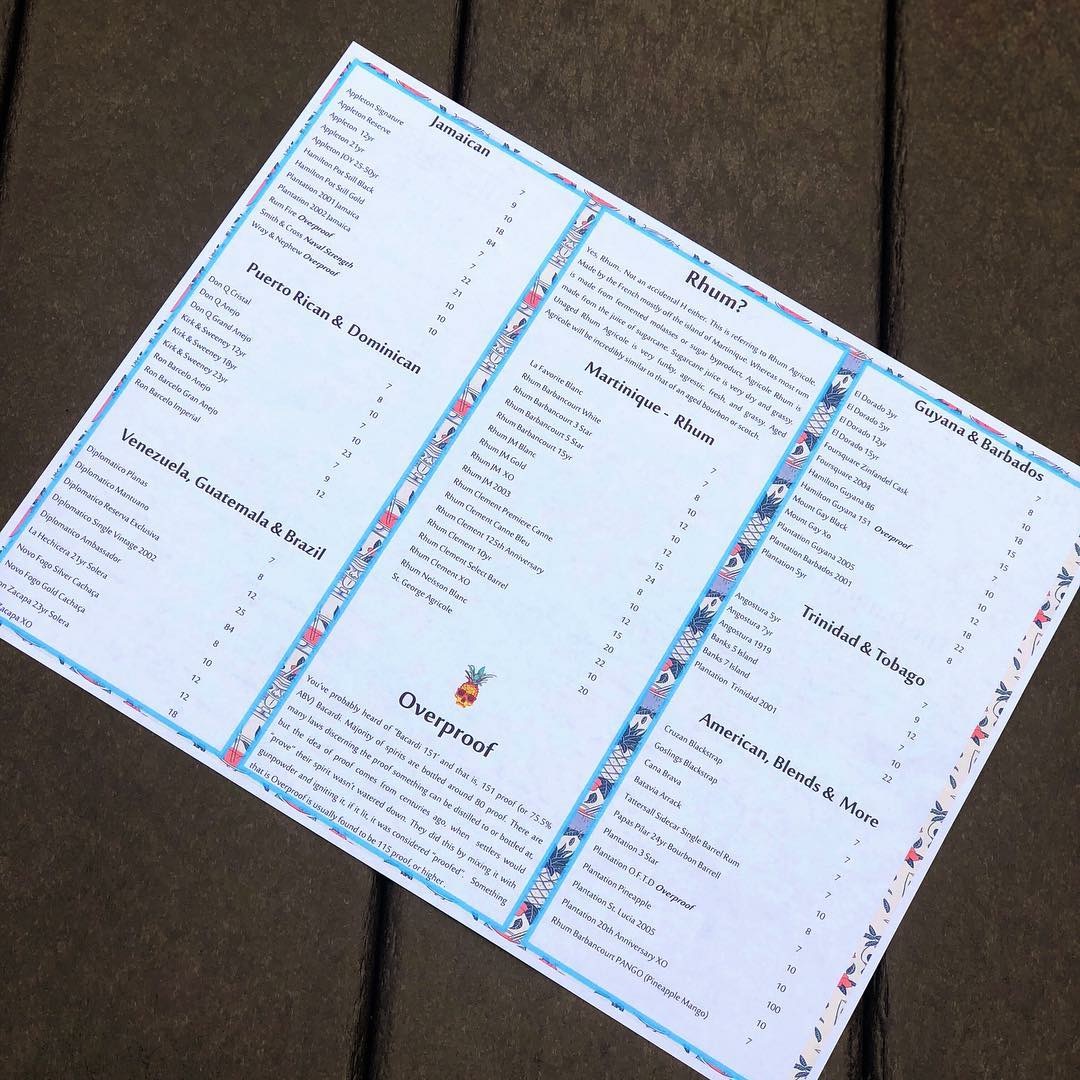 Jamaican
Appleton Signature 7
Appleton Reserve 9
Appleton 12yr 10
Appleton 21yr 18
Appleton JOY 25-50yr 84
Hamilton Pot Still Black 7
Hamilton Pot Still Gold 7
Plantation 2001 Jamaica 22
Plantation 2002 Jamaica 21
Rum Fire Overproof 10
Smith & Cross Naval Strength 10
Wray & Nephew Overproof 10
Puerto Rican & Dominican
Don Q Cristal 7
Don Q Anejo 8
Don Q Grand Anejo 10
Kirk & Sweeney 12yr 7
Kirk & Sweeney 18yr 10
Kirk & Sweeney 23yr 23
Ron Barcelo Anejo 7
Ron Barcelo Gran Anejo 9
Ron Barcelo Imperial 12
Venezuela, Guatemala & Brazil
Diplomatico Planas 7
Diplomatico Mantuano 8
Diplomatico Reserva Exclusiva 12
Diplomatico Single Vintage 2002 25
Diplomatico Ambassador 84
La Hechicera 21yr Solera 8
Novo Fogo Silver Cachaça 10
Novo Fogo Gold Cachaça 12
on Zacapa 23yr Solera 12
Zacapa XO 18
Rhum?
Yes, Rhum. Not an accidental H either. This is referring to Rhum Agricole.
Made by the French mostly off the island of Martinique. Whereas most rum
is made from fermented molasses or sugar byproduct, Agricole Rhum is
made from the juice of sugarcane. Sugarcane juice is very dry and grassy.
Unaged Rhum Agricole is very funky, agrestic, fresh, and grassy. Aged
Agricole will be incredibly similar to that of an aged bourbon or scotch.
Martinique - Rhum
La Favorite Blanc 7
Rhum Barbancourt White 7
Rhum Barbancourt 3 Star 8
Rhum Barbancourt 5 Star 10
Rhum Barbancourt 15yr 12
Rhum JM Blanc 10
Rhum JM Gold 12
Rhum JM XO 15
Rhum JM 2003 24
Rhum Clement Premiere Canne 8
Rhum Clement Canne Bleu 10
Rhum Clement 125th Anniversary 12
Rhum Clement 10yr 15
Rhum Clement Select Barrel 20
Rhum Clement XO 22
Rhum Neisson Blanc 10
St. George Agricole 20
Overproof
You've probably heard of "Bacardi 151" and that is, 151 proof (or 75.5%
ABV) Bacardi. Majority of spirits are bottled around 80 proof. There are
many laws discerning the proof something can be distilled to or bottled at,
but the idea of proof comes from centuries ago, when settlers would
"prove" their spirit wasn't watered down. They did this by mixing it with
gunpowder and igniting it, if it lit, it was considered "proofed". Something
that is Overproof is usually found to be 115 proof, or higher.
Guyana & Barbados
El Dorado 3yr 7
El Dorado 5yr 8
El Dorado 12yr 10
El Dorado 15yr 18
Foursquare Zinfandel Cask 15
Foursquare 2004 15
Hamilton Guyana 86 7
Hamilton Guyana 151 Overproof 10
Mount Gay Black 10
Mount Gay Xo 12
Plantation Guyana 2005 18
Plantation Barbados 2001 22
Plantation 5yr 8
Trinidad & Tobago
Angostura 5yr 7
Angostura 7yr 9
Angostura 1919 12
Banks 5 Island 7
Banks 7 Island 10
Plantation Trinidad 2001 22
American, Blends & More
Cruzan Blackstrap 7
Goslings Blackstrap 7
Cana Brava 7
Batavia Arrack 7
Tattersall Sidecar Single Barrel Rum 10
Papas Pilar 24yr Bourbon Barrell 8
Plantation 3 Star 7
Plantation O.F.T.D Overproof 10
Plantation Pineapple 10
Plantation St. Lucia 2005 100
Plantation 20th Anniversary XO 10
Rhum Barbancourt PANGO (Pineapple Mango) 7